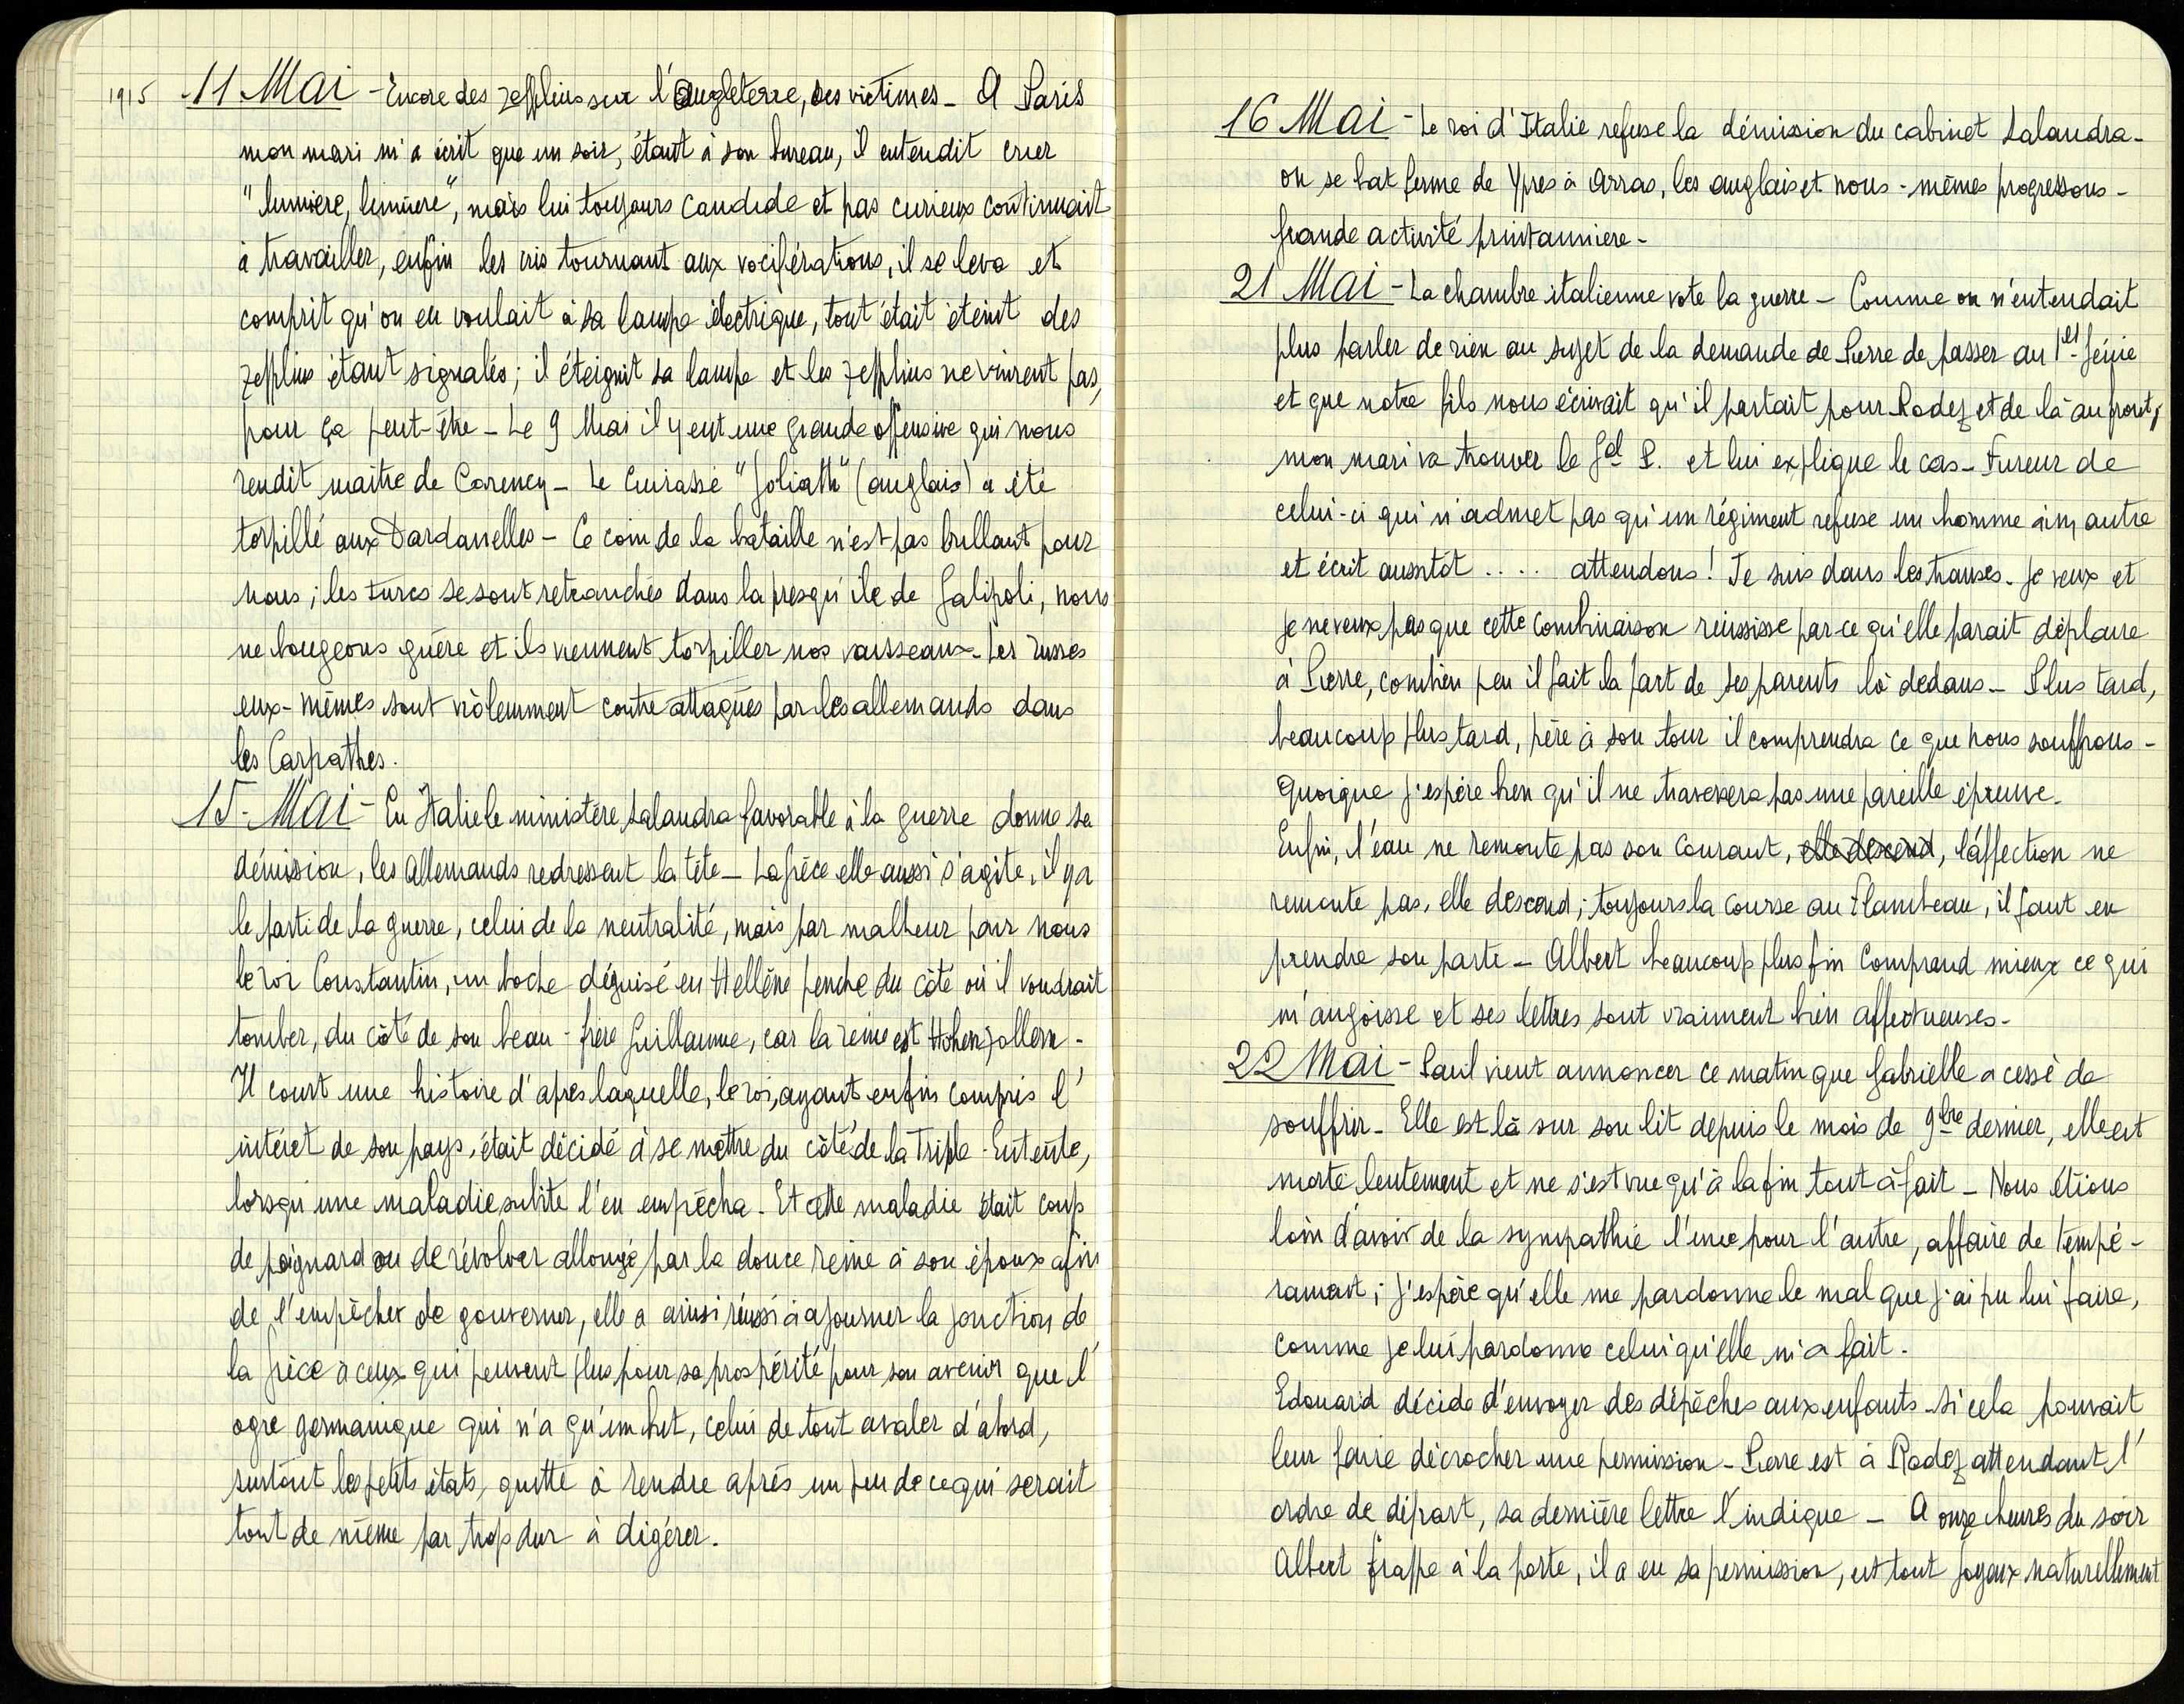 1915 11 Mai - Encore des zepplins sur l'Angleterre, des victimes - A Paris
mon mari m'a écrit que un soir, étant à son bureau, il entendit crier
"lumière, lumière", mais lui toujours candide et pas curieux continuait
à travailler, enfin les cris tournant aux vociférations, il se leva et
comprit qu'on en voulait à sa lampe électrique, tout était éteint des
zepplins étant signalés; il éteignit sa lampe et les zepplins ne vinrent pas,
pour ça peut-être - Le 9 Mai il y eut une grande offensive qui nous
rendit maitre de Carency - Le Cuirassé "Goliath" (anglais) a été
torpillé aux Dardanelles - Ce coin de la bataille n'est pas brillant pour
nous; les turcs se sont retranchés dans la presqu'ile de Galipoli, nous
ne bougeons guère et ils viennent torpiller nos vaisseaux - Les russes
eux-mêmes sont violemment contre attaqués par les allemands dans
les Carpathes.
15 - Mai - En Italie le ministère Salandra favorable à la guerre donne sa
démission, les Allemands redressent la tête - La Grèce elle aussi s'agite, il y a
le parti de la guerre, celui de la neutralité, mais par malheur pour nous
le roi Constantin, un boche déguisé en Hellène penche du côté où il voudrait
tomber, du côté de son beau-frère Guillaume, car la reine est Hohenzollern -
Il court une histoire d'après laquelle, le roi, ayant enfin compris l'
intéret de son pays, était décidé à se mettre du côté de la Triple-Entente,
lorsqu'une maladie subite l'en empêcha - Et cette maladie était coup
de poignard ou de révolver allongé par la douce reine à son époux afin
de l'empêcher de gouverner, elle a ainsi réussi à ajourner la jonction de
la Grèce à ceux qui peuvent plus pour sa prospérité pour son avenir que l'
ogre germanique qui n'a qu'un but, celui de tout avaler d'abord,
surtout les petits états, quitte à rendre après un peu de ce qui serait
tout de même par trop dur à digérer.
16 Mai - Le roi d'Italie refuse la démission du cabinet Salandra -
on se bat ferme de Ypres à Arras, les anglais et nous-mêmes progressons -
Grande activité printannière -
21 Mai - La chambre italienne vote la guerre - Comme on n'entendait
plus parler de rien au sujet de la demande de Pierre de passer au 1er Génie
et que notre fils nous écrivait qu'il partait pour Rodez et de là au front,
mon mari va trouver le Gal P. et lui explique le cas - Fureur de
celui-ci qui n'admet pas qu'un régiment refuse un homme à un autre
et écrit aussitôt .... attendons! Je suis dans les transes. Je veux et
je ne veux pas que cette combinaison réussisse par-ce qu'elle parait déplaire
à Pierre, combien peu il fait la part de ses parents là dedans - Plus tard,
beaucoup plus tard, père à son tour il comprendra ce que nous souffrons -
Quoique j'espère bien qu'il ne traversera pas une pareille épreuve.
Enfin, l'eau ne remonte pas son courant, elle descend, l'affection ne
remonte pas, elle descend; toujours la course au Flambeau, il faut en
prendre son parti - Albert beaucoup plus fin comprend mieux ce qui
m'angoisse et ses lettres sont vraiment bien affectueuses -
22 Mai - Paul vient annoncer ce matin que Gabrielle a cessé de
souffrir - Elle est là sur son lit depuis le mois de 9bre dernier, elle est
morte lentement et ne s'est vue qu'à la fin tout à fait - Nous étions
loin d'avoir de la sympathie l'une pour l'autre, affaire de tempé-
rament; j'espère qu'elle me pardonne le mal que j'ai pu lui faire,
comme je lui pardonne celui qu'elle m'a fait.
Edouard décide d'envoyer des dépêches aux enfants - si cela pouvait
leur faire décrocher une permission - Pierre est à Rodez attendant l'
ordre de départ, sa dernière lettre l'indique - A onze heures du soir
Albert frappe à la porte, il a eu sa permission, est tout joyeux naturellement